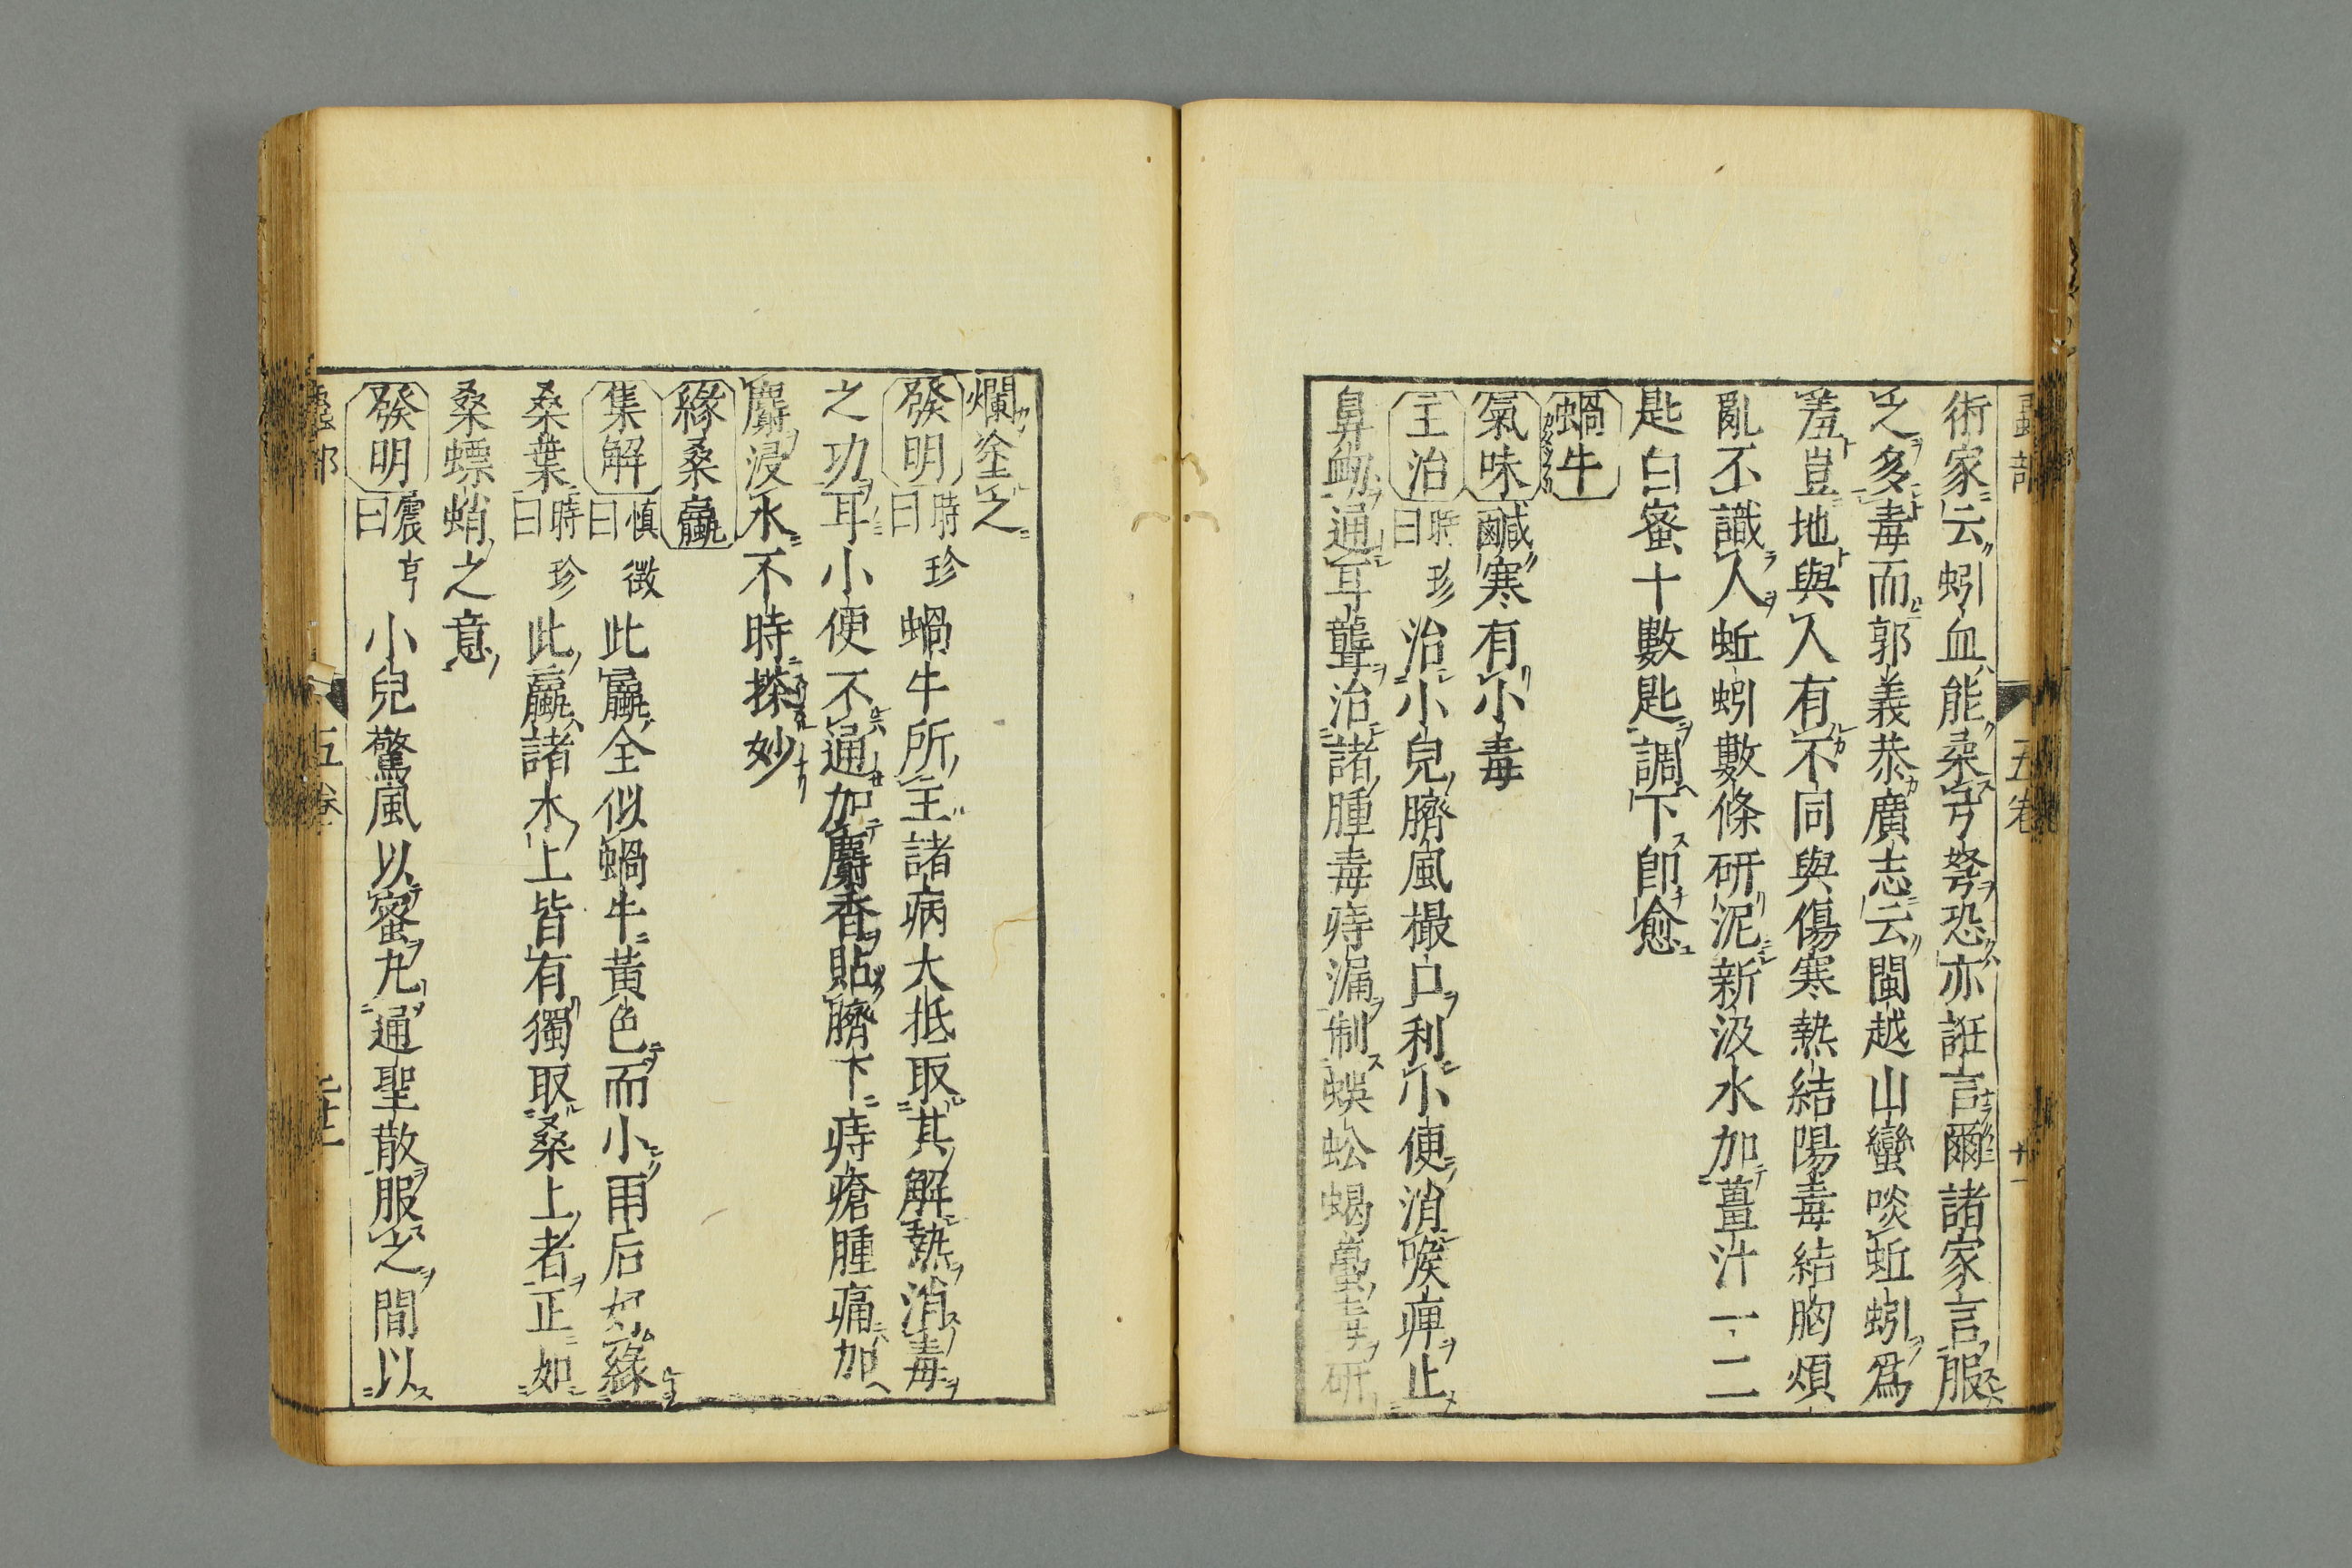 術家云蚓血能柔弓弩恐亦誑言爾諸家言服
之多毒而郭義恭廣志云閩越山蠻啖蚯蚓爲
羞豈地與人有不同與傷寒熱結陽毒結胸煩
亂不識人蚯蚓數條研泥新汲水加薑汁一二
匙白蜜十數匙調下即愈
蝸牛
氣味 鹹寒有小毒
主治 時珍曰 治小兒臍風撮口利小便消喉痺止
鼻衂通耳聾治諸腫毒痔漏制蜈蚣蝎蠆毒研
爛塗之
發明 時珍曰 蝸牛所主諸病大抵取其解熱消毒
之功耳小便不通加麝香貼臍下痔瘡腫痛加
麝浸水不時搽妙
緣桑蠃
集解 愼微曰 此蠃全似蝸牛黃色而小雨后好緣
桑葉 時珍曰 此蠃諸木上皆有獨取桑上者正如
桑螵蛸之意
發明 震亨曰 小兒驚風以蜜丸通聖散服之間以
五卷